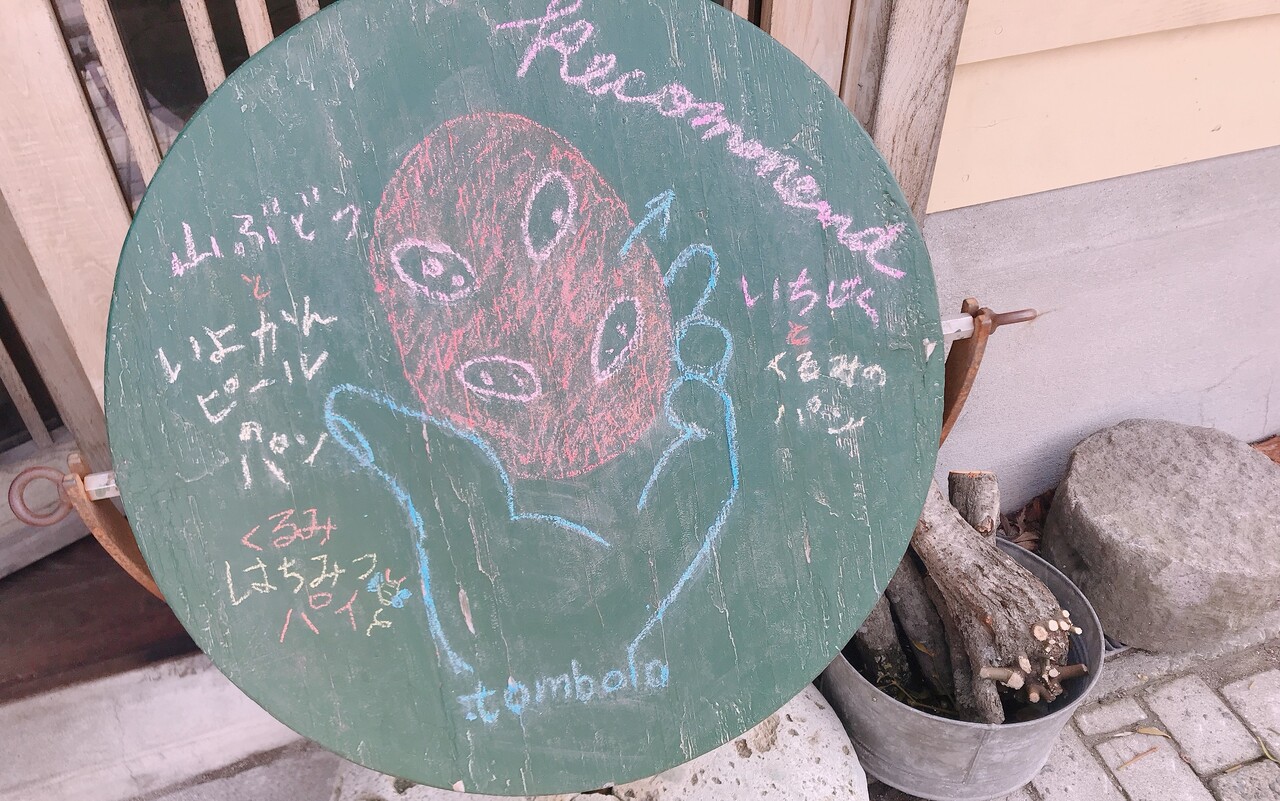 Recommend
山ぶどう
と
いよかん
ピール
パン
いちじく
と
くるみの
パン
くるみ
はちみつ
パイ
tombolo